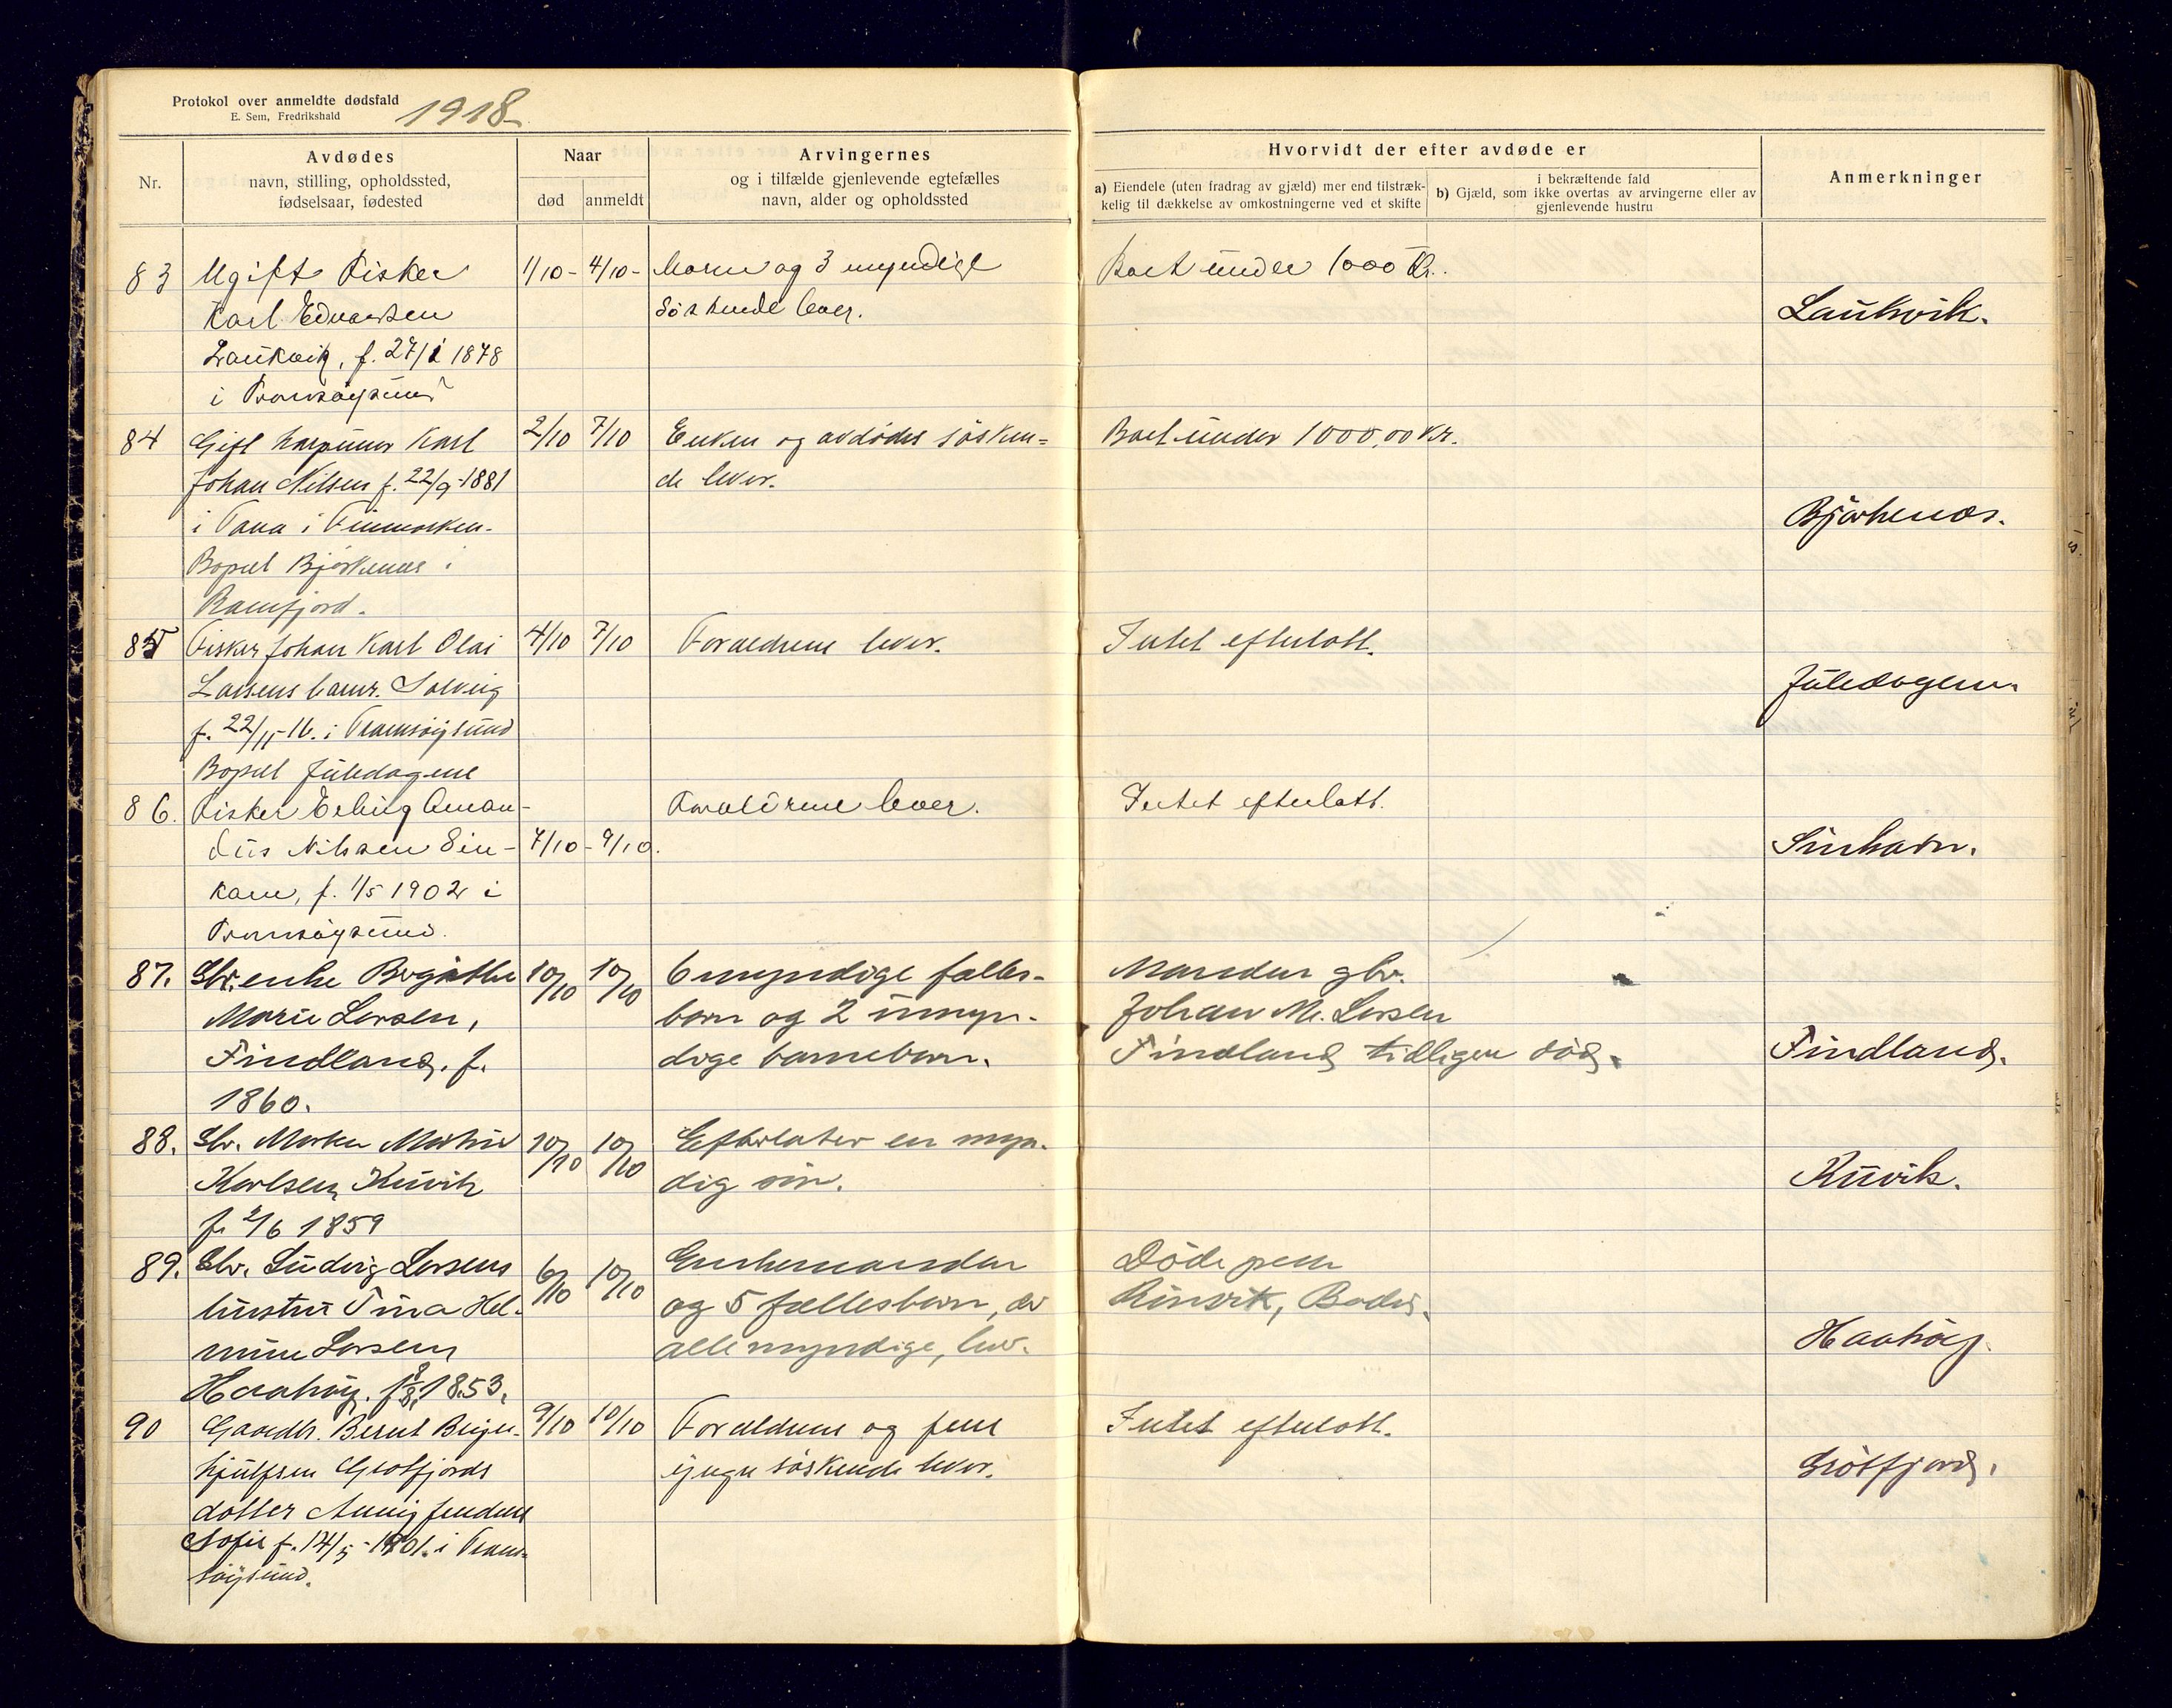 Protokol over anmeldte dødsfald
E. Sem, Fredrikshald
1918
Nr.
Avdødes
navn, stilling, opholdssted,
fødselsaar, fødested
Naar
død
anmeldt
Arvingernes
og i tilfælde gjenlevende egtefælles
navn, alder og opholdssted
Hvorvidt der efter avdøde er
a) Eiendele (uten fradrag av gjæld) mer end tilstræk-
kelig til dækkelse av omkostningerne ved et skifte
i bekræftende fald
b) Gjæld, som ikke overtas av arvingerne eller av
gjenlevende hustru
Anmerkninger
83 Ugift Fisker 1/10 - 4/10 - Moren og 3 myndige Boet under 1000 Kr.
Karl Edvardsen søskende lever. Laukvik.
Laukvik, f. 27/1 1878
i Tromsøysund
84 Gift harpuner Karl 2/10 7/10 Enken og avdødes søsken= Boet under 1000,00 Kr.
Johan Nilsen f. 22/9-1881 de lever.
i Tana i Finmarken. Bjørkenæs.
Bopæl Bjørkenæs i
Ramfjord.
85 Fisker Johan Karl Olai 4/10 7/10 Forældrene lever. Intet efterlatt.
Larsens barn Solveig Juledagene.
f. 22/11-16. i Tromsøysund
Bopæl Juledagene
86. Fisker Erling Aman- Forældrene lever. Intet efterlatt.
dus Nilssen Sin- 7/10 - 9/10. Sinkavn.
kavn, f. 1/5 1902 i
Tromsøysund.
87. Gbr. enke Birgithe 10/10 10/10 6 myndige fælles- Manden gbr.
Marie Larsen, born og 2 umyn- Johan M. Larsen
Findland, f. dige barneborn. Findland tidligere død. Findland.
1860.
88. Gbr. Morten Martin 10/10 10/10 Efterlater en myn-
Karlsen, dig søn.
f. 2/6 1859
89. Gbr. Ludvig Larsens 6/10 10/10 Enkemanden Døde paa
hustru Tina Hel- og 5 fællesborn, der Rønvik, Bodø.
mine Larsen alle myndige, lever. Haakøy
Haakøy. f. 8/8 1853.
90 Gaardbr. Bernt Beyer- 9/10 10/10 Forældrene og fem Intet efterlatt.
hjulfsen Grøtfjords yngre søskende lever. Grøtfjord.
datter
Sofie f. 14/5-1901. i Trom-
søysund.